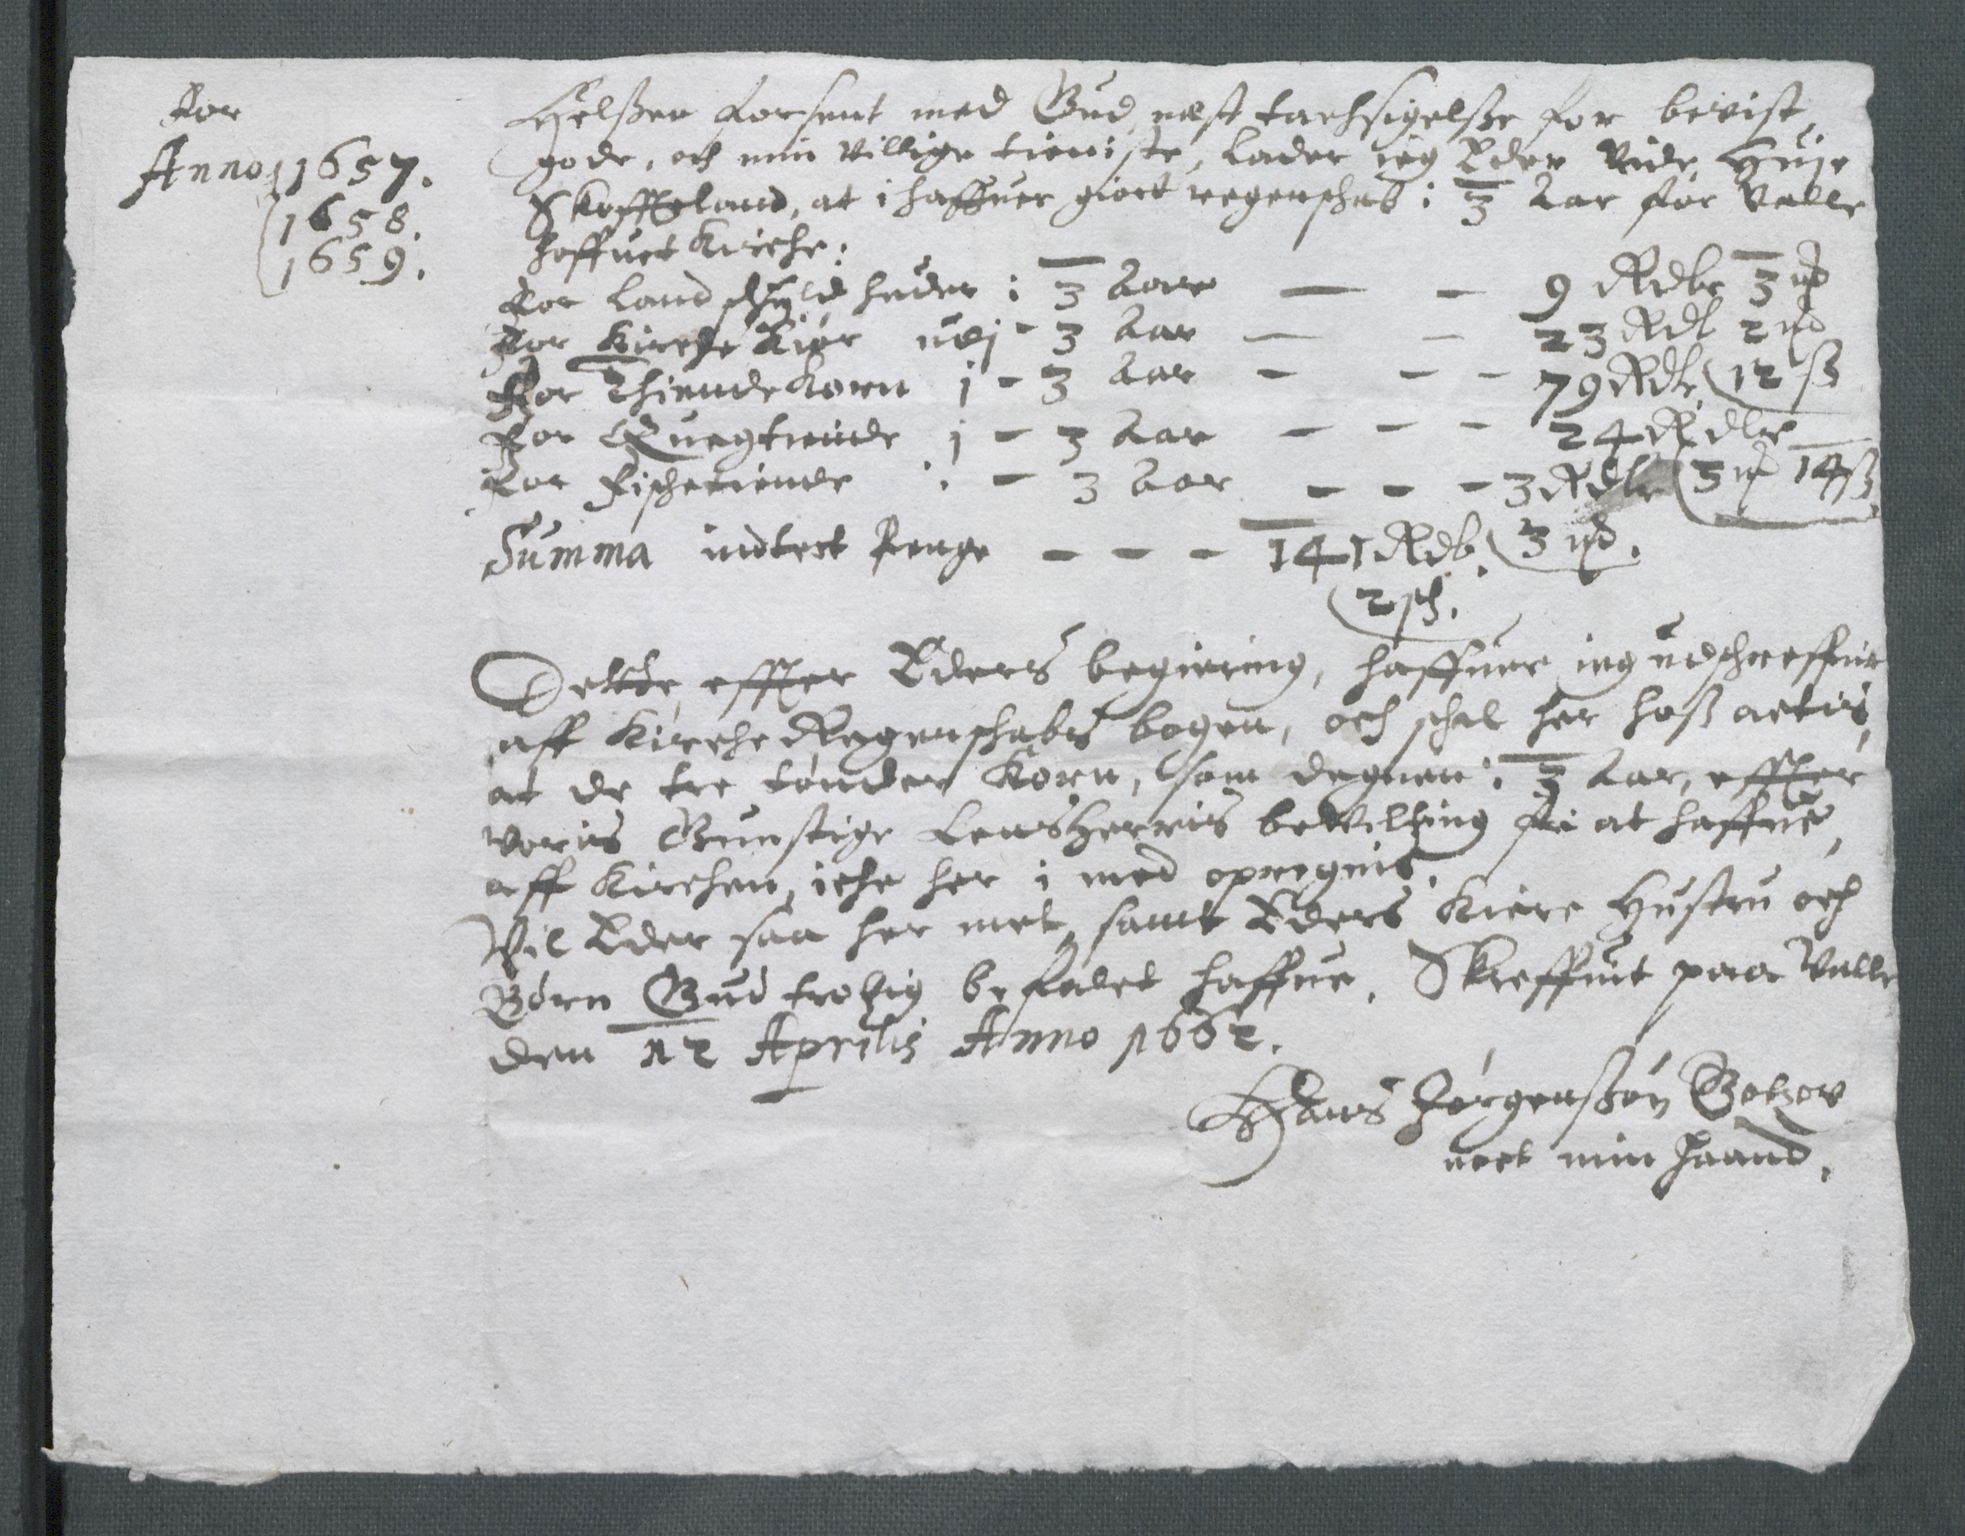 For
Anno 1657.
1658.
1659.
Helßen forsent med Gud, nest tachsigelße for bevist
gode, och min villige tieniste, lader ieg Eder vide Huje
Skoffland, at i haffuer giort regenschab i 3 Aar for Valle
hoffuet Kirche:
For Landschyld huder i 3 Aar — — 9 Rdlr 3 mk
For Kirche Kiør udj - 3 Aar — — 23 Rdl 2 mk
For Thiende Korn i - 3 Aar - - - 79 Rdlr 12 ß
For Quegtiende i - 3 Aar - - - 24 Rdlr
For Fischetiende i - 3 Aar - - - 3 Rdlr 3 mk 14 ß
Summa indtect Penge - - - 141 Rdlr. 3 mk.
2 sch.
Dette, effter Eders begiering, haffuer ieg udschreffuit
aff Kirche Regenschabs bogen, och schal her hoß actis,
at de tre tønder Korn, som degnen i 3 Aar, effter
voris Gunstige LensHerris beVilling fri at haffue,
aff Kirchen, iche her i med opregnis.
Vil Eder saa her met, samt Eders Kiere Hustru och
Børn Gud trolig befalet haffue. Skreffuit paa Valle
den 12 Aprilis Anno 1662.
Hans Jørgenßøn
met min Haand.